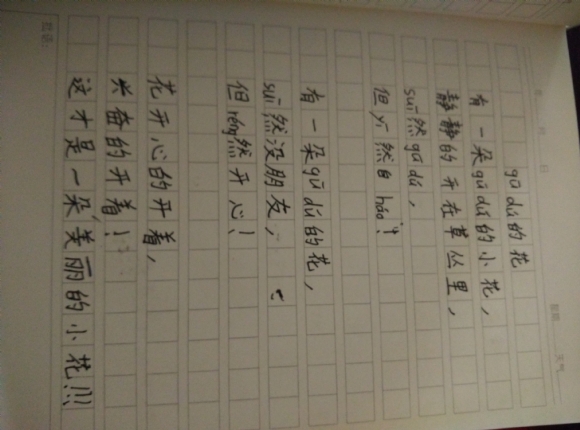 gū dú的花
有一朵gū dú的小花，
静静的开在草丛里，
suī然gū dú，
但yī然自háo！
有一朵gū dú的花，
suī然没朋友，
但réng然开心！
花开心的开着，
兴奋的开着！
这才是一朵美丽的小花!!!